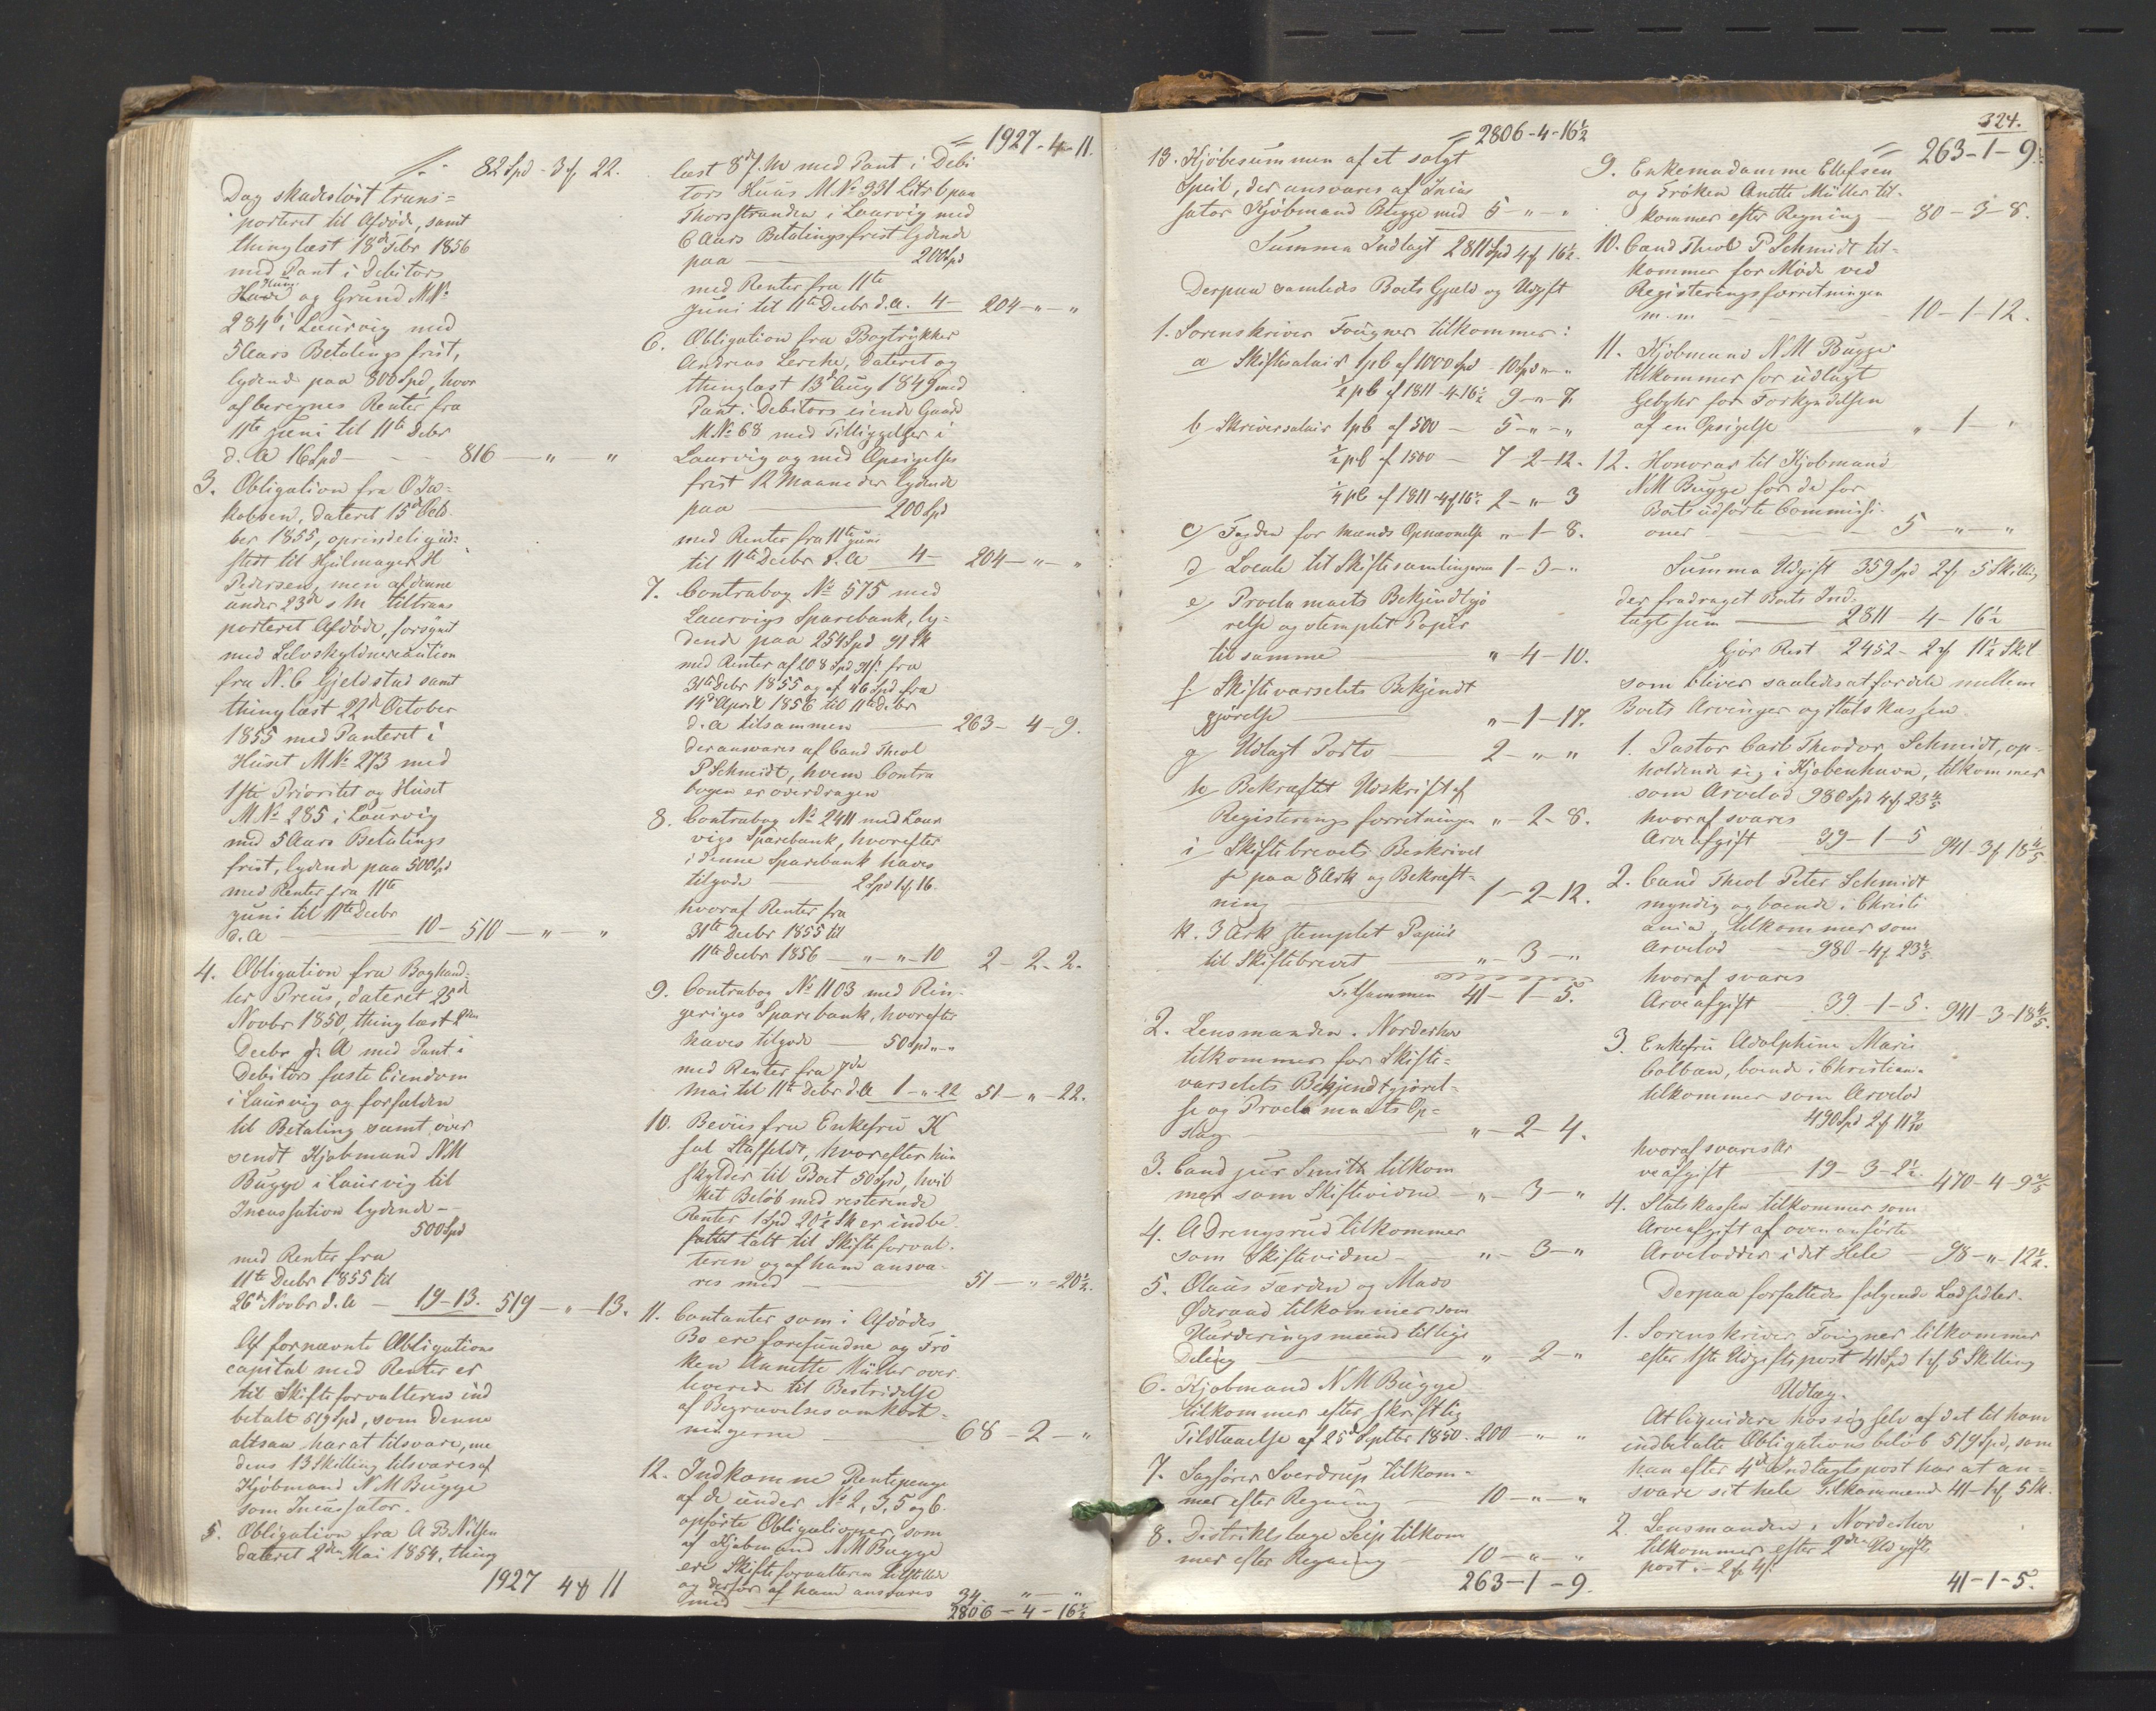 82 Spd - 3 ƒ 22.
Dag skadesløst trans=
porteret til Afdøde, samt
thinglæst 18de Febr 1856
med Pant i Debitors
Huus og Grund M.N:
284 b i Laurvig med
5 Aars Betalings frist,
lydende paa 800 Spd, hvor
af beregnes Renter fra
11te Juni til 11te Debr
d. A 16 Spd - - - 816 - " - "
3. Obligation fra O Ja=
kobsen, dateret 15de Octo
ber 1855, oprindelig ud=
stedt til Hjulmager H
Pedersen, men af denne
under 23de s M tiltrans
porteret Afdøde, forsynet
med Selvskyldnercaution
fra N. C Gjeldstad samt
thinglæst 22de October
1855 med Panteret i
Huset M No 273 med
1ste Prioritet og Huset
M No 285 i Laurvig
med 5 Aars Betalings
frist, lydende paa 500 Spd
med Renter fra 11te
Juni til 11te Decbr
d. A - 10 - 510 - " - "
4. Obligation fra Boghand=
ler Preus, dateret 25de
Novbr 1850, thinglæst 2den
Decbr s. A med Pant i
Debitors faste Eiendom
i Laurvig og forfalden
til Betaling samt over
sendt Kjøbmand N M
Bugge i Laurvig til
Incassation lydende -
500 Spd
med Renter fra
11te Decbr 1855 til
26de Novbr d. A - 19 - 13. 519 - " - 13.
Af fornævnte Obligations
capital med Renter er
til Skifteforvalteren ind
betalt 519 Spd, som denne
altsaa har at tilsvare, me
dens 13 Skilling tilsvares af
Kjøbmand N M Bugge
som Incassator.
5. Obligation fra A B Nilsen
dateret 2den Mai 1854, thing
1927 4 ƒ 11
1927 - 4 - 11.
læst 8de s. M med Pant i Debi
tors Huus M No 331 Litr b paa
Thorsstranden i Laurvig med
6 Aars Betalingsfrist lydende
paa - 200 Spd
med Renter fra 11te
Juni til 11te Decbr d. A. 4 - 204 - " - "
6. Obligation fra Bogtrykker
Andreas Lerche, dateret og
thinglæst 13de Aug 1849 med
Pant i Debitors eiende Gaard
M No 68 med Tilliggelser i
Laurvig og med Opsigelses
frist 12 Maaneder lydende
paa - 200 Spd
med Renter fra 11te Juni
til 11te Decbr d. A 4 - 204 - " - "
7. Contrabog No 575 med
Laurvigs Sparebank, ly=
dende paa 254 Spd 91 Sk
med Renter af 208 Spd 91 s: fra
31te Debr 1855 og af 46 Spd fra
14de April 1856 til 11te Debr
d. A tilsammen - 263 - 4 - 9.
der ansvares af Cand Theol
P Schmidt, hvem Contra
bogen er overdragen
8. Contrabog No 2411 med Laur
vigs Sparebank, hvorefter
i denne Sparebank haves
tilgode - 2 Spd 1 ƒ 16.
hvoraf Renter fra
31te Decbr 1855 til
11te Decbr 1856 - " - " - 10 2 - 2 - 2.
9. Contrabog No 1103 med Rin
geriges Sparebank, hvorefter
haves tilgode - 50 Spd " - "
med Renter fra 7de
Mai til 11te Debr d. A 1 - " - 22 51 - " - 22.
10. Beviis fra Enkefru K
sal Staffeldt, hvorefter hun
skylder til Boet 50 Spd, hvil
ket Beløb med resterende
Renter 1 Spd 20½ Sk er indbe
talt til Skifteforval=
teren og af ham ansva=
res med - 51 - " - 20½.
11. Contanter som i Afdødes
Bo ere forefundne og Frø
ken Annette Müller over
leverede til Bestridelse
af Begravelsesomkost=
ningerne - 68 - 2 - "
12. Indkomne Rentepenge
af de under No 2, 3, 5 og 6
opførte Obligationer, som
af Kjøbmand N M Bugge
ere Skifteforvalteren tilstillede
og derfor af ham ansvares
med - 34 - " - "
2806 - 4 - 16½
324.
2806 - 4 - 16½
13. Kjøbesummen af et solgt
Speil, der ansvares af Incas
sator Kjøbmand Bugge med 5 - " - "
Summa Indtægt 2811 Spd 4 ƒ 16½.
Derpaa samledes Boets Gjæld og Udgift
1. Sorenskriver Fougner tilkommer:
a Skiftesalair 1 pC af 1000 Spd - 10 Spd " - "
½ pC af 1811 - 4 - 16½ 9 - " - 7.
b Skriversalair 1 pC af 500 - 5 - " - "
½ pC af 1500 - 7 - 2 - 12.
¼ pC af 1811 - 4 ƒ 16½ 2 - " - 3
c Fogden for Mænds Opnævnelse " - 1 - 8.
d Locale til Skiftesamlingerne 1 - 3 - "
e Proclamaets Bekjendtgjø
relse og stemplet Papir
til samme - " - 4 - 10.
f. Skiftevarselets Bekjendt
gjørelse - " - 1 - 17.
g Udlagt Porto - 2 - " - "
h Bekræftet Udskrift af
Registerings forretningen " - 2 - 8.
i Skiftebrevets Beskrivel
se paa 8 Ark og Bekræft=
ning - 1 - 2 - 12.
k. 3 Ark stemplet Papiir
til Skiftebrevet - " - 3 - "
Tilsammen 41 - 1 - 5.
2. Lensmanden i Norderhov
tilkommer for Skifte=
varselets Bekjendtgjørel=
se og Proclamaets Op=
slag - " - 2 - 4.
3. Cand jur Smith tilkom
mer som Skiftevidne - " - 3 - "
4. A Drengsrud tilkommer
som Skiftevidne - " - 3 - "
5. Olaus Færden og Mads
Øderaad tilkommer som
Vurderingsmænd til lige
Deling - " 2 - "
6. Kjøbmand N M Bugge
tilkommer efter skriftlig
Tilstaaelse af 25de Septbr 1850 - 200 - " - "
7. Sagfører Sverdrup tilkom=
mer efter Regning - 10 - " - "
8. Distriktslæge Seip tilkom
mer efter Regning - 10 - " - "
263 - 1 - 9.
263 - 1 - 9.
9. Enkemadamme Ellefsen
og Frøken Anette Müller til=
kommer efter Regning - 80 - 3 - 8.
10. Cand Theol P Schmidt til=
kommer for Møde ved
Registeringsforretningen
m. m - 10 - 1 - 12.
11. Kjøbmand N M Bugge
tilkommer for udlagt
Gebyhr for Forkyndelsen
af en Opsigelse " - 1 - "
12. Honorar til Kjøbmand
N M Bugge for de for
Boet udførte Commissi=
oner - 5 - " - "
Summa Udgift 359 Spd 2 ƒ 5 Skilling
der fradraget Boets Ind=
tægtssum - 2811 - 4 - 16½
Gjør Rest 2452 - 2 ƒ 11½ Skil
som bliver saaledes at fordele mellem
Boets Arvinger og Statskassen
1. Pastor Carl Theodor Schmidt, op=
holdende sig i Kjøbenhavn, tilkommer
som Arvelod 980 Spd 4 ƒ 23⅘
hvoraf svares
Arveafgift - 39 - 1 - 5 941 - 3 ƒ 18⅘.
2. Cand Theol Peter Schmidt
myndig og boende i Christi
ania, tilkommer som
Arvelod - 980 - 4 ƒ 23⅘
hvoraf svares
Arveafgift 39 - 1 - 5. 941 - 3 - 18⅘.
3. Enkefru Adolphine Marie
Colban, boende i Christiania
tilkommer som Arvelod
490 Spd 2 ƒ 11 9/10
hvoraf svares Ar
veafgift - 19 - 3 - 2½ 470 - 4 - 9⅖
4. Statskassen tilkommer som
Arveafgift af ovenanførte
Arvelodder i det Hele - 98 - " - 12½.
Derpaa forfattedes følgende Lodsedler.
1. Sorenskriver Fougner tilkommer
efter 1ste Udgiftspost 41 Spd 1 ƒ 5 Skilling
Udlæg.
At liquidere hos sig selv af det til ham
indbetalte Obligationsbeløb 519 Spd, som
han efter 4de Indtægtspost har at an=
svare sit hele Tilkommende 41 - 1 ƒ 5 Sk.
2. Lensmanden i Norderhov
tilkommer efter 2den Udgifts
post. - 2 ƒ 4 s:
41 - 1 - 5.